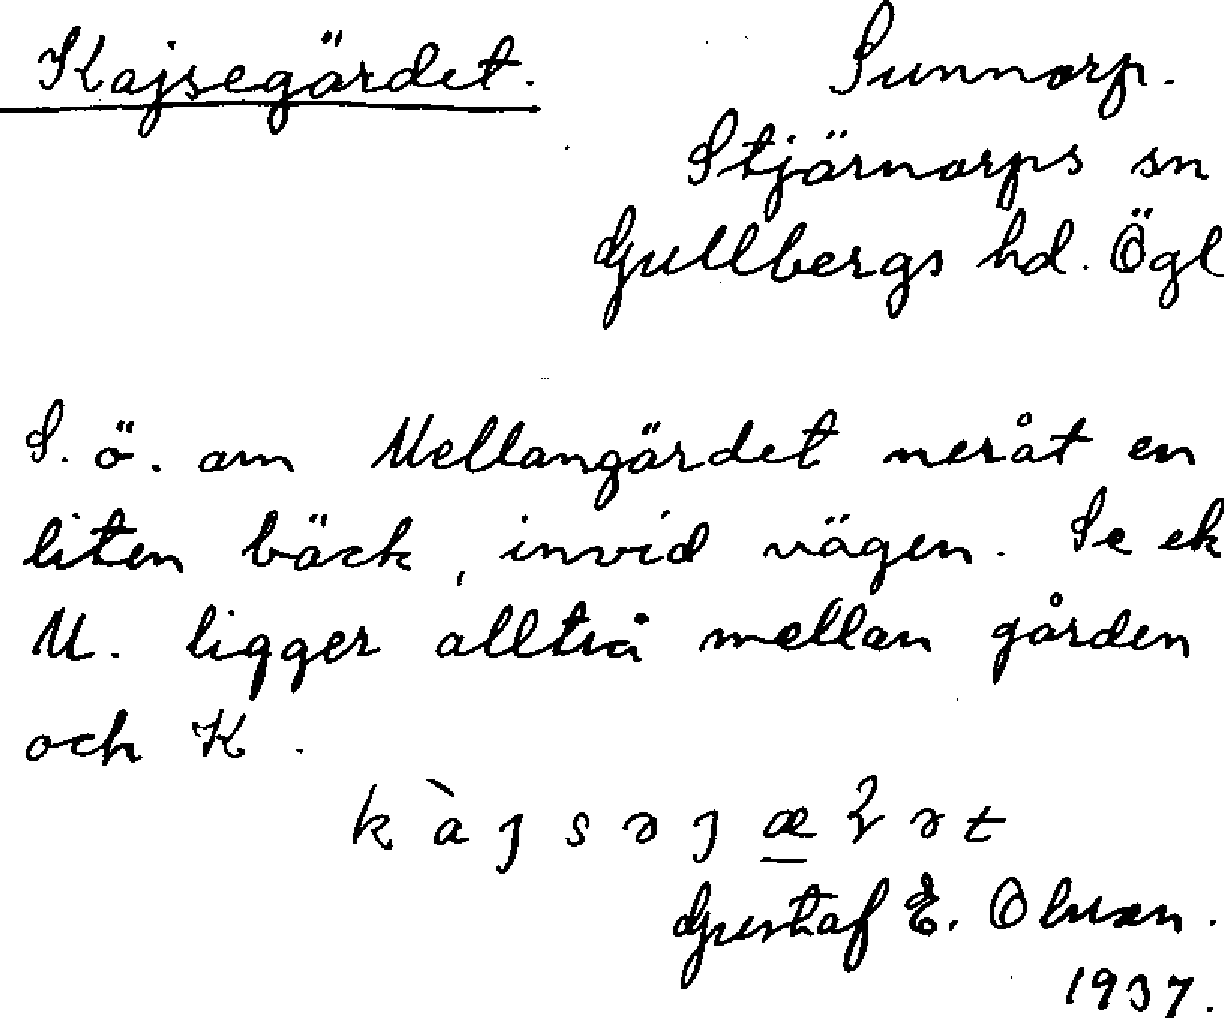 Kajsegärdet.
Sunnorp.
Stjärnorps sn
Gullbergs hd. Ögl
S. ö. om Mellangärdet neråt en
liten bäck, invid vägen. Se ek
M. ligger alltså mellan gården
och K.
Gustaf E. Olsson.
1937.